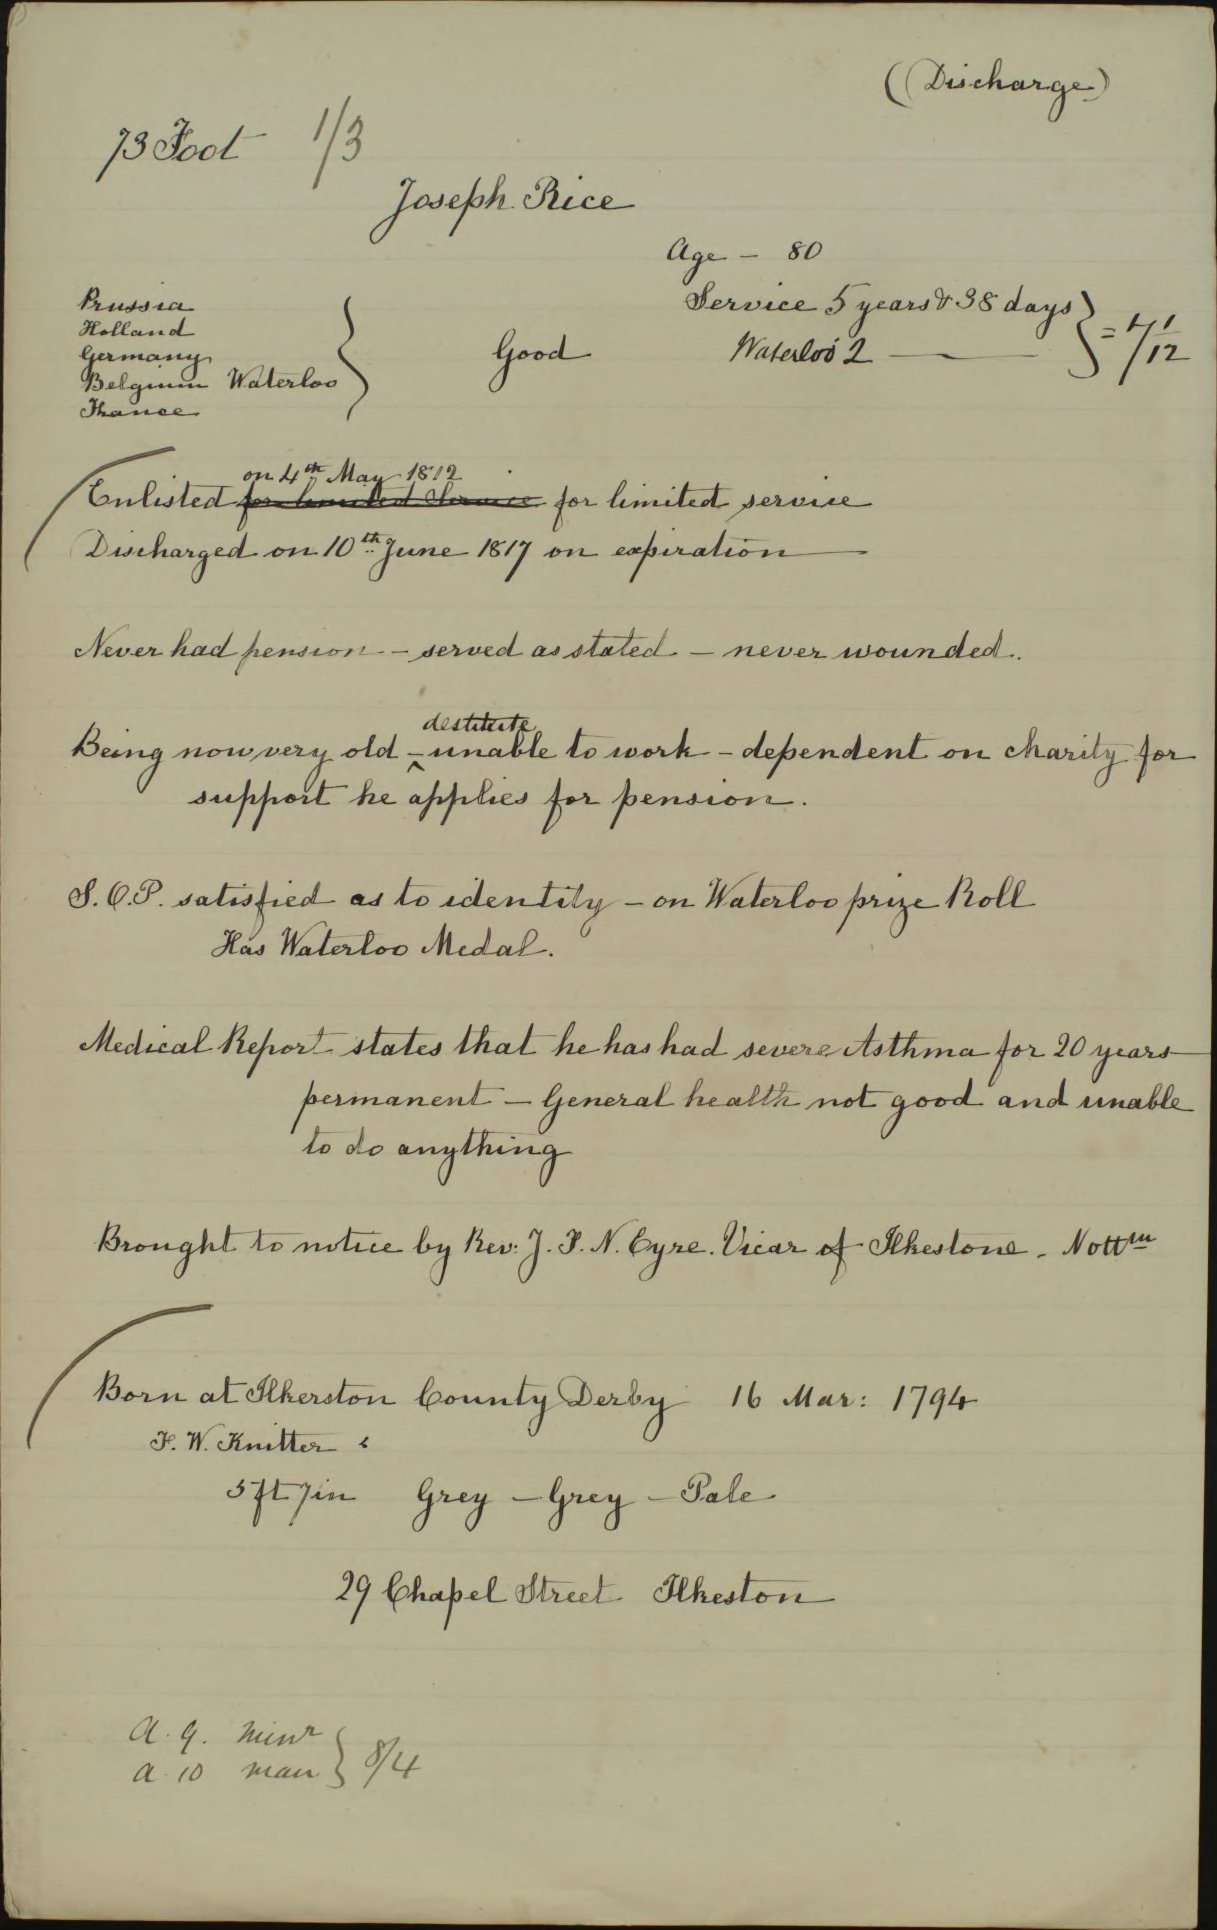 (Discharge)
73 Foot 1/3
Joseph Rice
Age - 80
Prussia
Holland
Germany
Belgium Waterloo
France
Good
Service 5 years & 38 days
Waterloo 2 —
= 7 1/12
on 4th May 1812
Enlisted for limited Service for limited service
Discharged on 10th June 1817 on expiration
Never had pension - served as stated - never wounded.
destitute
Being now very old - unable to work - dependent on charity for
support he applies for pension.
S.O.P. satisfied as to identity - on Waterloo prize Roll
Has Waterloo Medal.
Medical Report states that he has had severe Asthma for 20 years
permanent - General health not good and unable
to do anything
Brought to notice by Rev: J. F. N. Eyre. Vicar of Ilkestone - Nottm
Born at Ilkerston County Derby 16 Mar: 1794
F. W. Knitter
5 ft 7 in Grey - Grey - Pale
29 Chapel Street Ilkeston
a. 9. minr
a 10 man
8/4